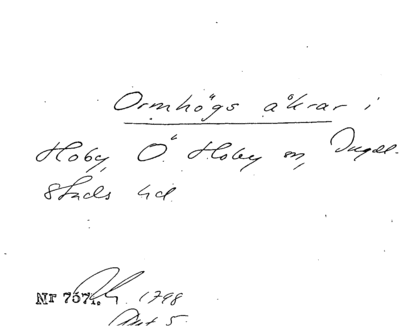 Ormhögs åkrar i
Hoby, Ö. Hoby sn, Ingel-
stads hd
Nr 7571. 1798
Akt 5